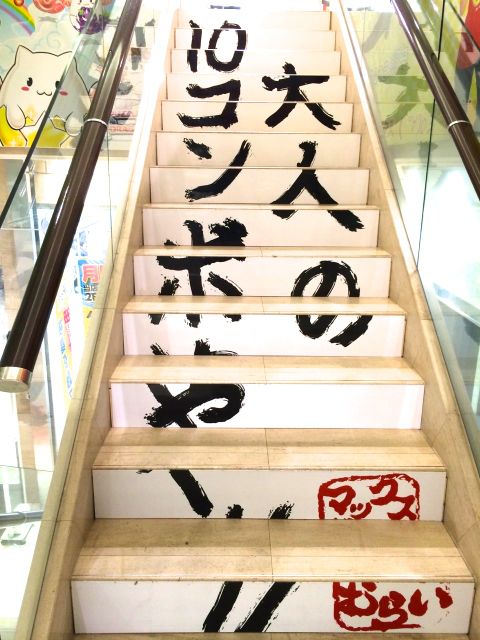 大人の
10コンボや〜!!
マックス
むらい